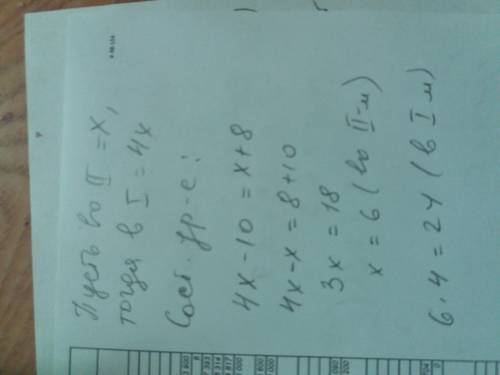 Пусть во II = x,
тогда в I = 4x
Сост. ур-е:
4x - 10 = x + 8
4x - x = 8 + 10
3x = 18
x = 6 (во II-м)
6 · 4 = 24 (в I м)